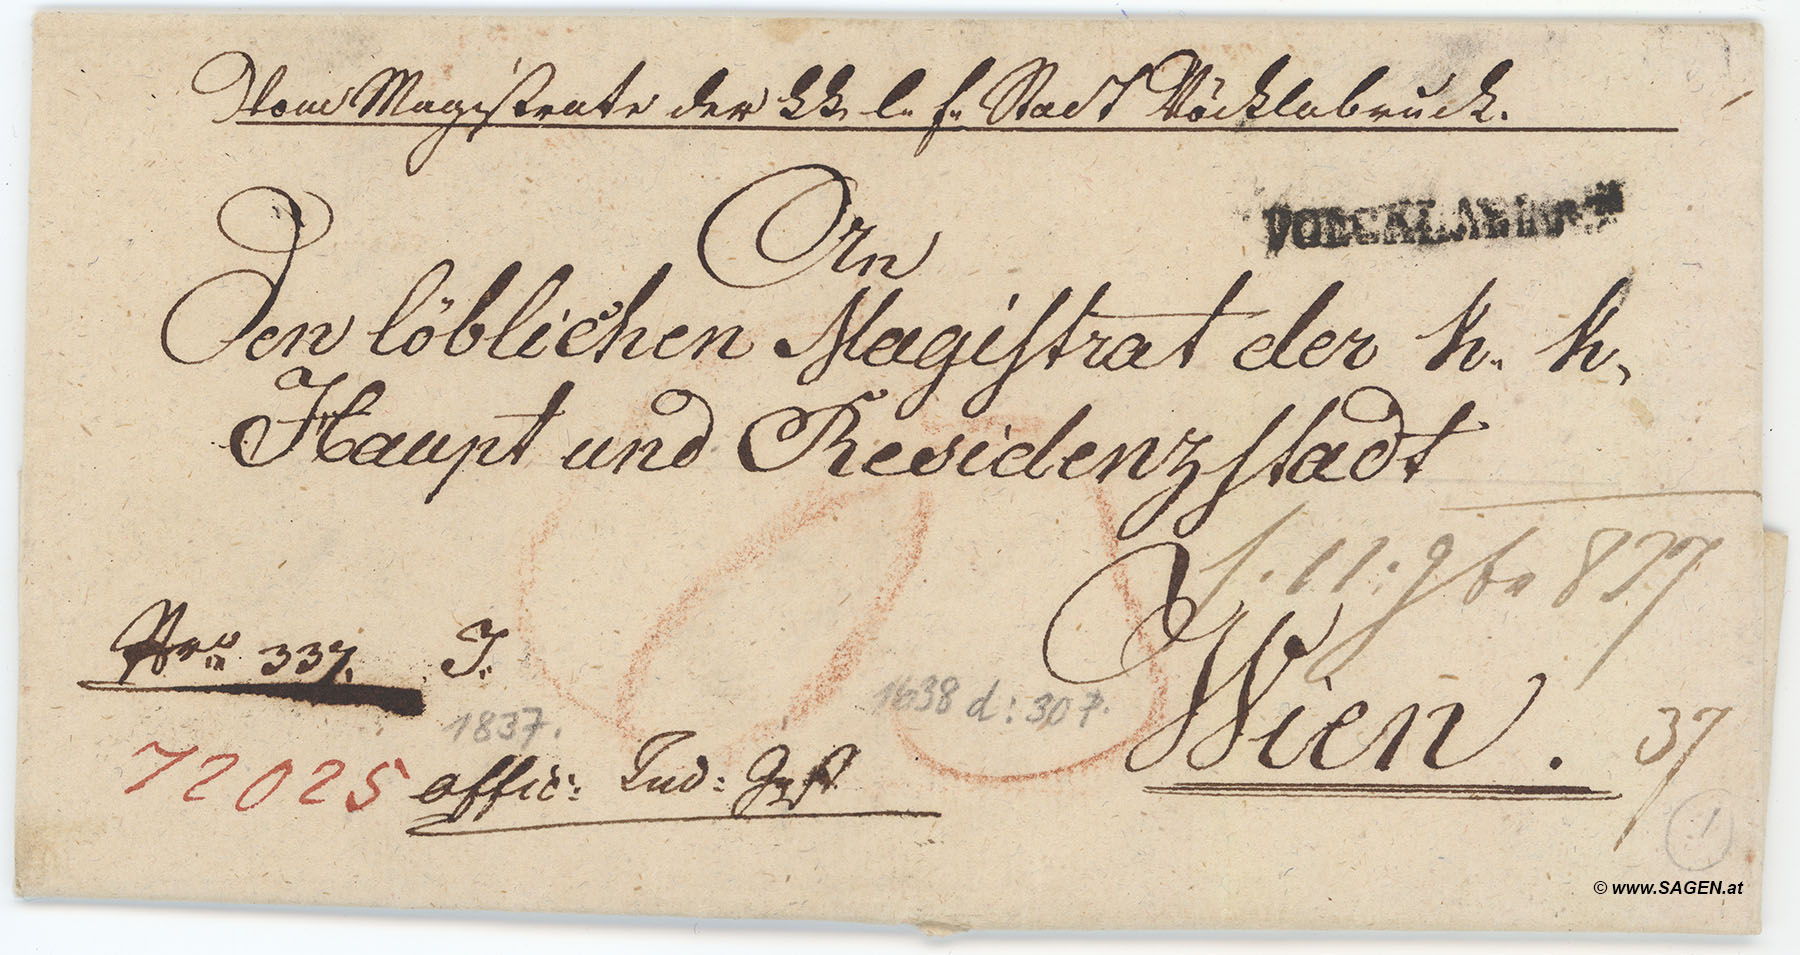 Vom Magistrate der kk. l. f. Stadt Vöcklabruck.
An
Den löblichen Magistrat der k. k.
Haupt und Residenzstadt
Wien.
37
Nro 337. J.
1837.
1638 d: 307.
72025 offic: Ind: 
1
© www.SAGEN.at